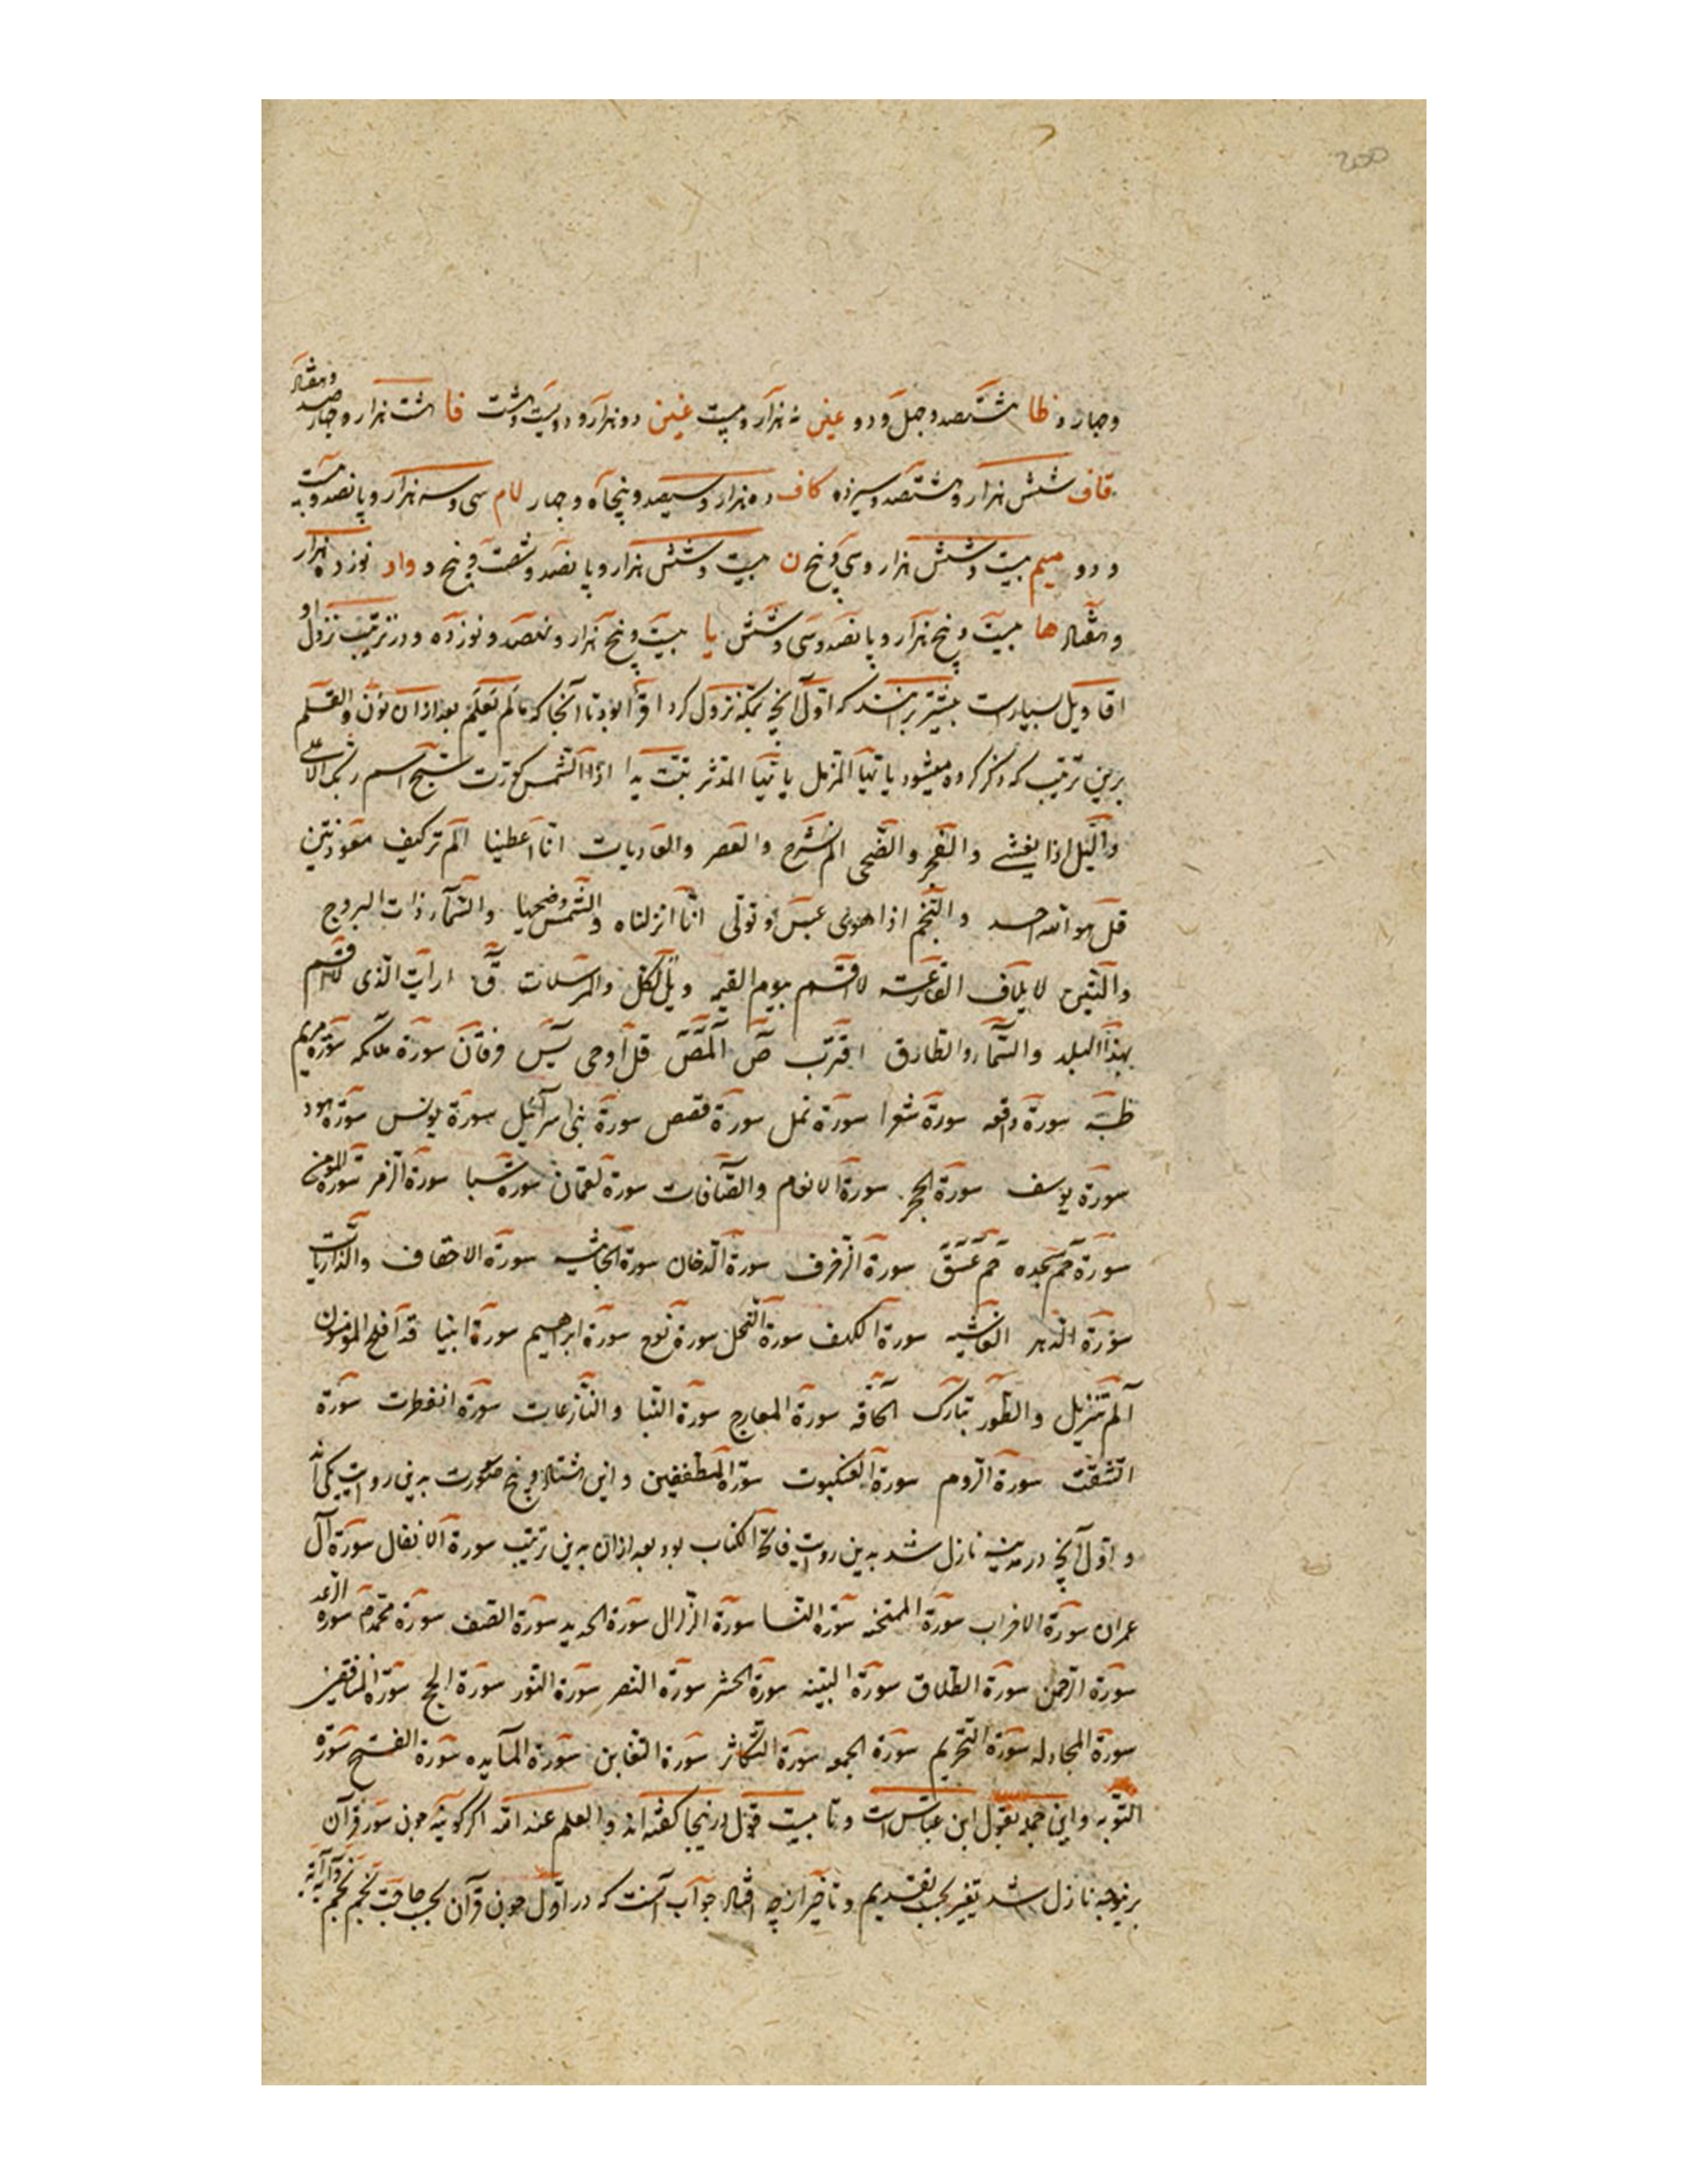 200
وجهار و ظا هشتصد وجهل و دو عین نه هزار و بیست غین دو هزار و دویست و هشت فا هشت هزار و چهار صد و هفتاد
قاف شش هزار و هشتصد و سیزده کاف ده هزار و سیصد و پنجاه و جهار لام سی و سه هزار و پانصد و بیست
و دو میم بیست و شش هزار و سی و پنج ن بیست و شش هزار و پانصد و شصت و پنج و واو نوزده هزار
و هفتاد ها بیست و پنج هزار و پانصد و سی و شش یا بیست و پنج هزار و نهصد و نوزده و در ترتیب نزول او
اقاویل بسیارست بیشتر برانند که اول آنچه بمکه نزول کرد اقرأ بود تا آنجا که مالم یعلم بعد ازان نون والقلم
برین ترتیب که ذکر کرده میشود یا ایها المزمل یا ایها المدثر تبت یدا اذا الشمس کورت سبح اسم ربک الاعلی
واللیل اذا یغشی والفجر والضحی الم نشرح والعصر والعادیات انا اعطینا الم تر کیف معوذتین
قل هو الله احد والنجم اذا هوی عبس و تولی انا انزلناه والشمس وضحیها والسماء ذات البروج
والتین لایلاف القارعة لا اقسم بیوم القیمه ویل لکل والمرسلات ق ارایت الذی لا اقسم
بهذا البلد والسماء والطارق اقترب ص المص قل اوحی یس فرقان سورة ملائکه سورة مریم
طه سورة واقعه سورة شعرا سورة نمل سورة قصص سورة بنی اسرآئیل سورة یونس سورة هود
سورة یوسف سورة الحجر سورة الانعام والصافات سورة لقمان سورة سبا سورة الزمر سورة المومن
سورة حم سجده حم عسق سورة الزخرف سورة الدخان سورة الجاثیه سورة الاحقاف والذاریات
سورة الدهر الغاشیه سورة الکهف سورة النحل سورة نوح سورة ابراهیم سورة انبیا قد افلح المؤمنون
الم تنزیل والطور تبارک الحاقه سورة المعارج سورة النبا والنازعات سورة انفطرت سورة
انشقت سورة الروم سورة العنکبوت سورة المطففین و این هشتاد و پنج صورت به نی روایت مکی اند
و اول آنچه در مدینه نازل شد بدین روایت فاتحة الکتاب بود بعد ازان بدین ترتیب سورة الانفال سورة آل
عمران سورة الاحزاب سورة الممتحنه سورة النسا سورة الزلزال سورة الحدید سورة الصف سورة محمدم سورة الرعد
سورة الرحمن سورة الطلاق سورة البینه سورة الحشر سورة النصر سورة النور سورة الحج سورة المنافقین
سورة المجادله سورة التحریم سورة الجمعه سورة التکاثر سورة التغابن سورة المآیده سورة الفتح سورة
التوبه و این جمله بقول ابن عباس است و تا بیست قول درینجا کفته اند و العلم عند الله اکر کویند جون سور قرآن
برینوجه نازل شد تغییر بحسب تقدیم و تاخیر از چه افتاد جواب آنست که در اول جون قرآن بحسب حاجت نجم نجم و آیه آیه